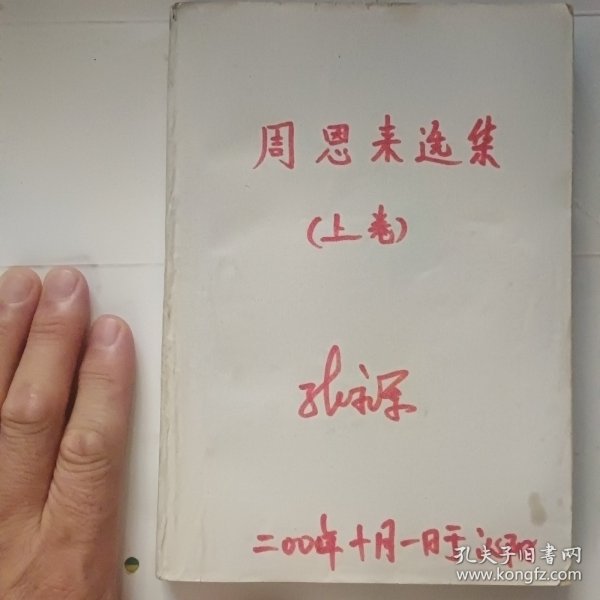 周恩来选集
(上卷)
二〇〇〇年十月一日于
孔夫子旧书网
www.kongfz.com